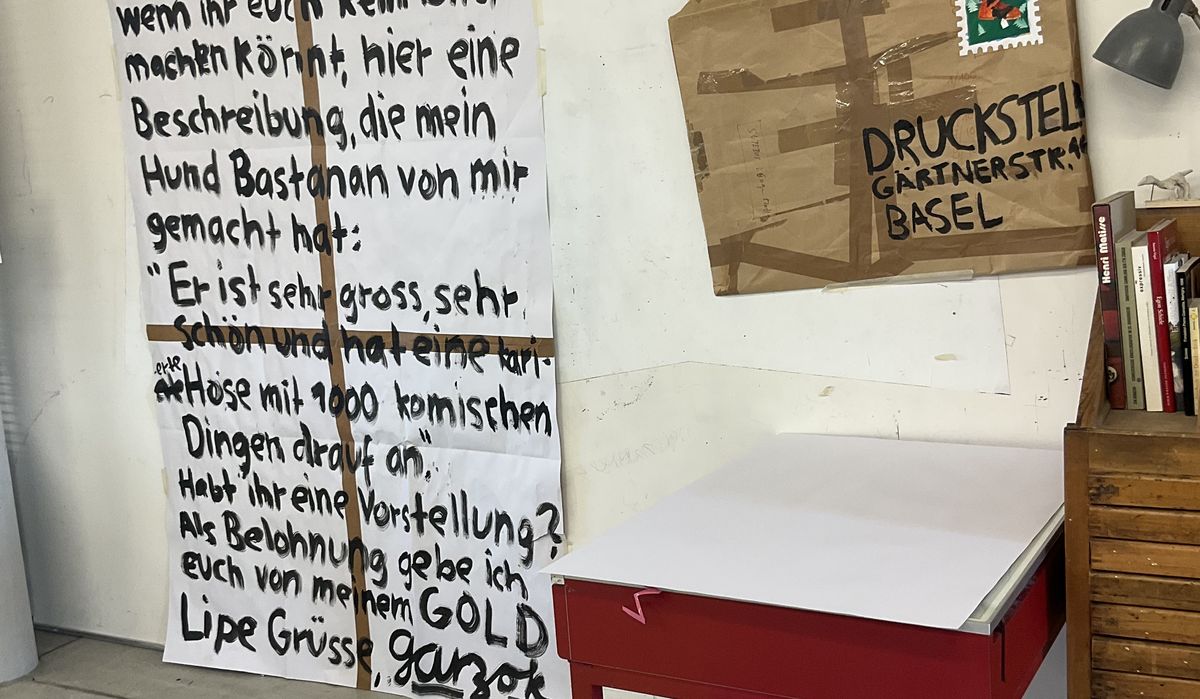 wenn ihr euch
machen könnt, hier eine
Beschreibung, die mein
Hund Bastanan von mir
gemacht hat:
"Er ist sehr gross, sehr
schön und hat eine kari-
erte Hose mit 1000 komischen
Dingen drauf an."
Habt ihr eine Vorstellung?
Als Belohnung gebe ich
euch von meinem GOLD
Lipe Grüsse, garzok
DRUCKSTELL
GÄRTNERSTR.
BASEL
Henri Matisse
expressiv
Egon Schiele